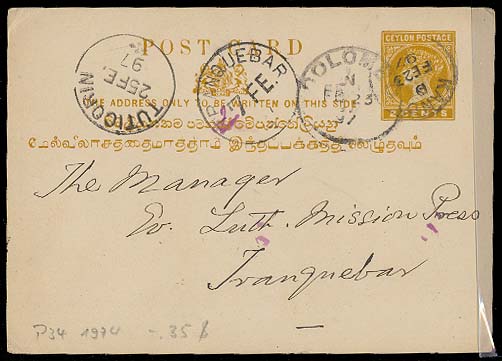 POST CARD
CEYLON POSTAGE
THE ADDRESS ONLY TO BE WRITTEN ON THIS SIDE
CENTS
TUTICORIN
25 FE.
97
TRANQUEBAR
FE
COLOMBO
N
FE 23
97
KANDY
B
FE 23
97
மேல்விலாசத்தைமாத்திரம் இந்தப்பக்கத்தி லெழுதவும்
The Manager
Ev. Luth. Mission Press
Tranquebar
P34 1974 -.35 $